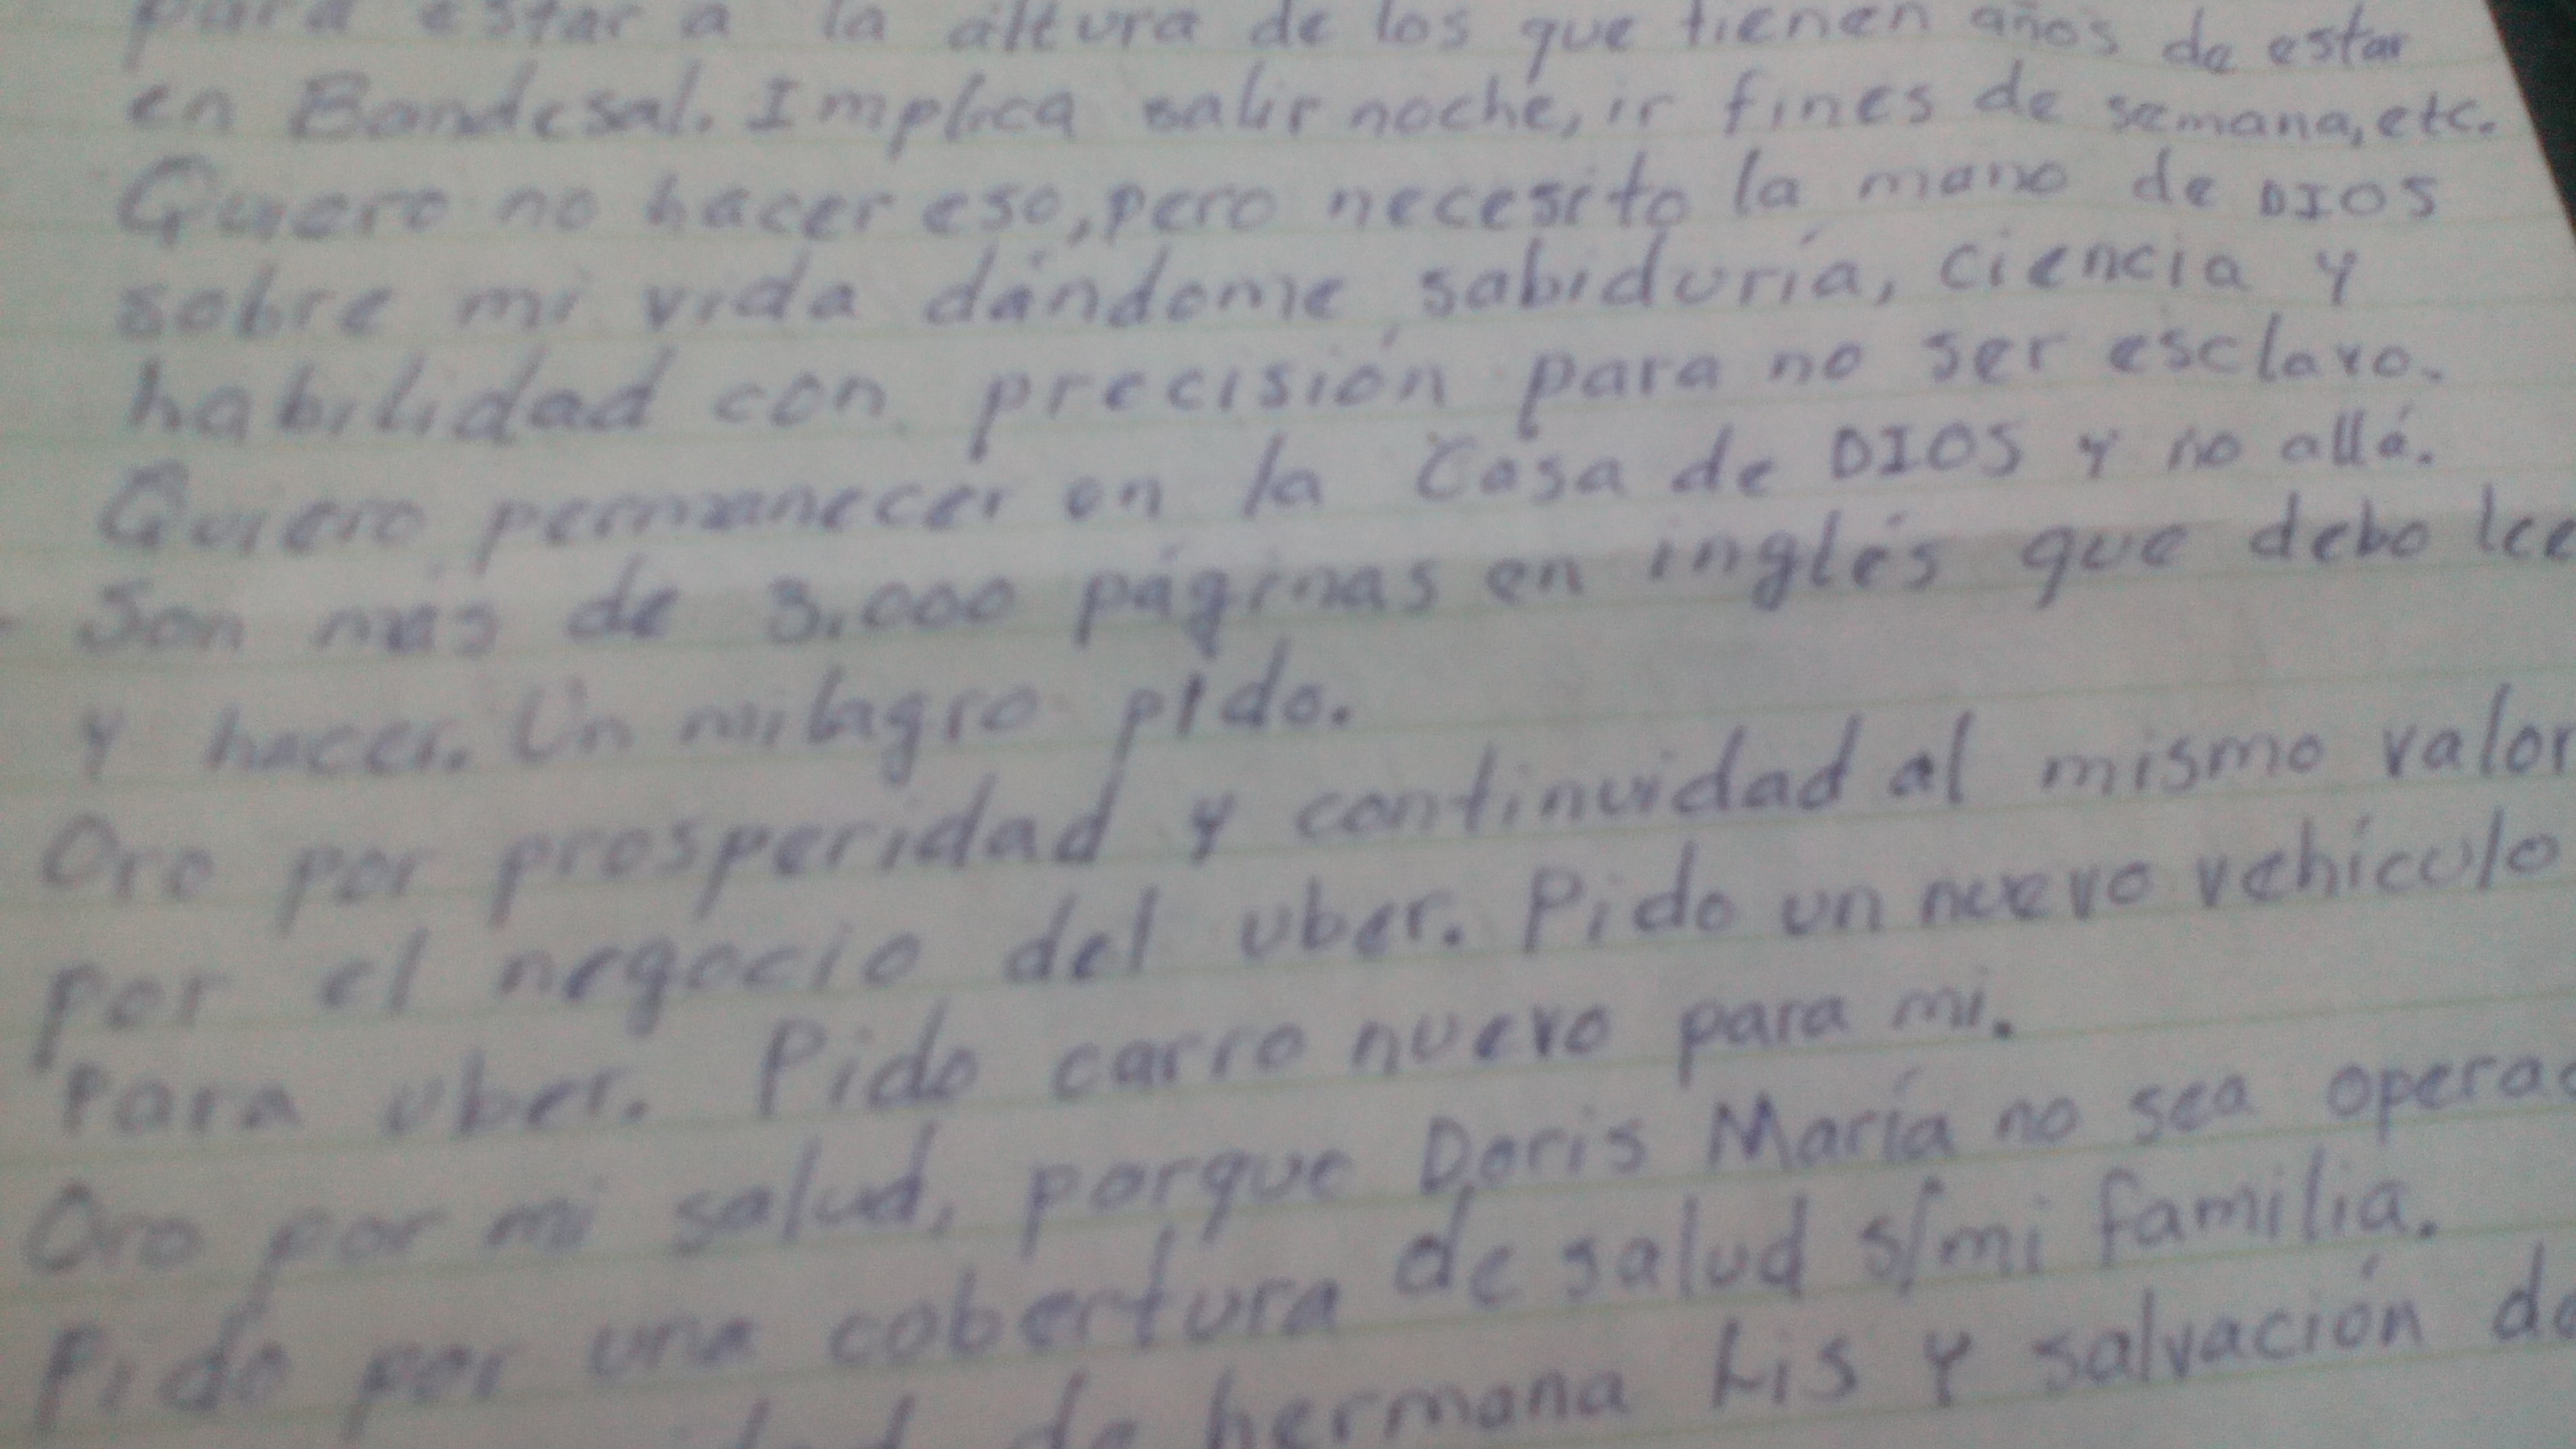 para estar a la altura de los que tienen años de estar
en Bandesal. Implica salir noche, ir fines de semana, etc.
Quiero no hacer eso, pero necesito la mano de DIOS
sobre mi vida dándome sabiduría, ciencia y
habilidad con precisión para no ser esclavo.
Quiero permanecer en la Casa de DIOS y no allá.
Son más de 3,000 páginas en inglés que debo lee
y hacer. Un milagro pido.
Oro por prosperidad y continuidad al mismo valor
por el negocio del uber. Pido un nuevo vehículo
para uber. Pido carro nuevo para mi.
Oro por mi salud, porque Doris María no sea opera
Pido por una cobertura de salud s/mi familia.
de hermana Lis y salvación de